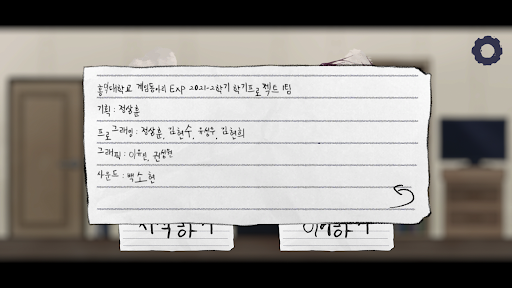 홍익대학교 게임동아리 ExP 2021-2학기 학기프로젝트 1팀
기획 : 정상훈
프로그래밍 : 정상훈, 김현수, 유성우, 김현희
그래픽 : 이유빈,
사운드 : 백소현
시작하기
이어하기